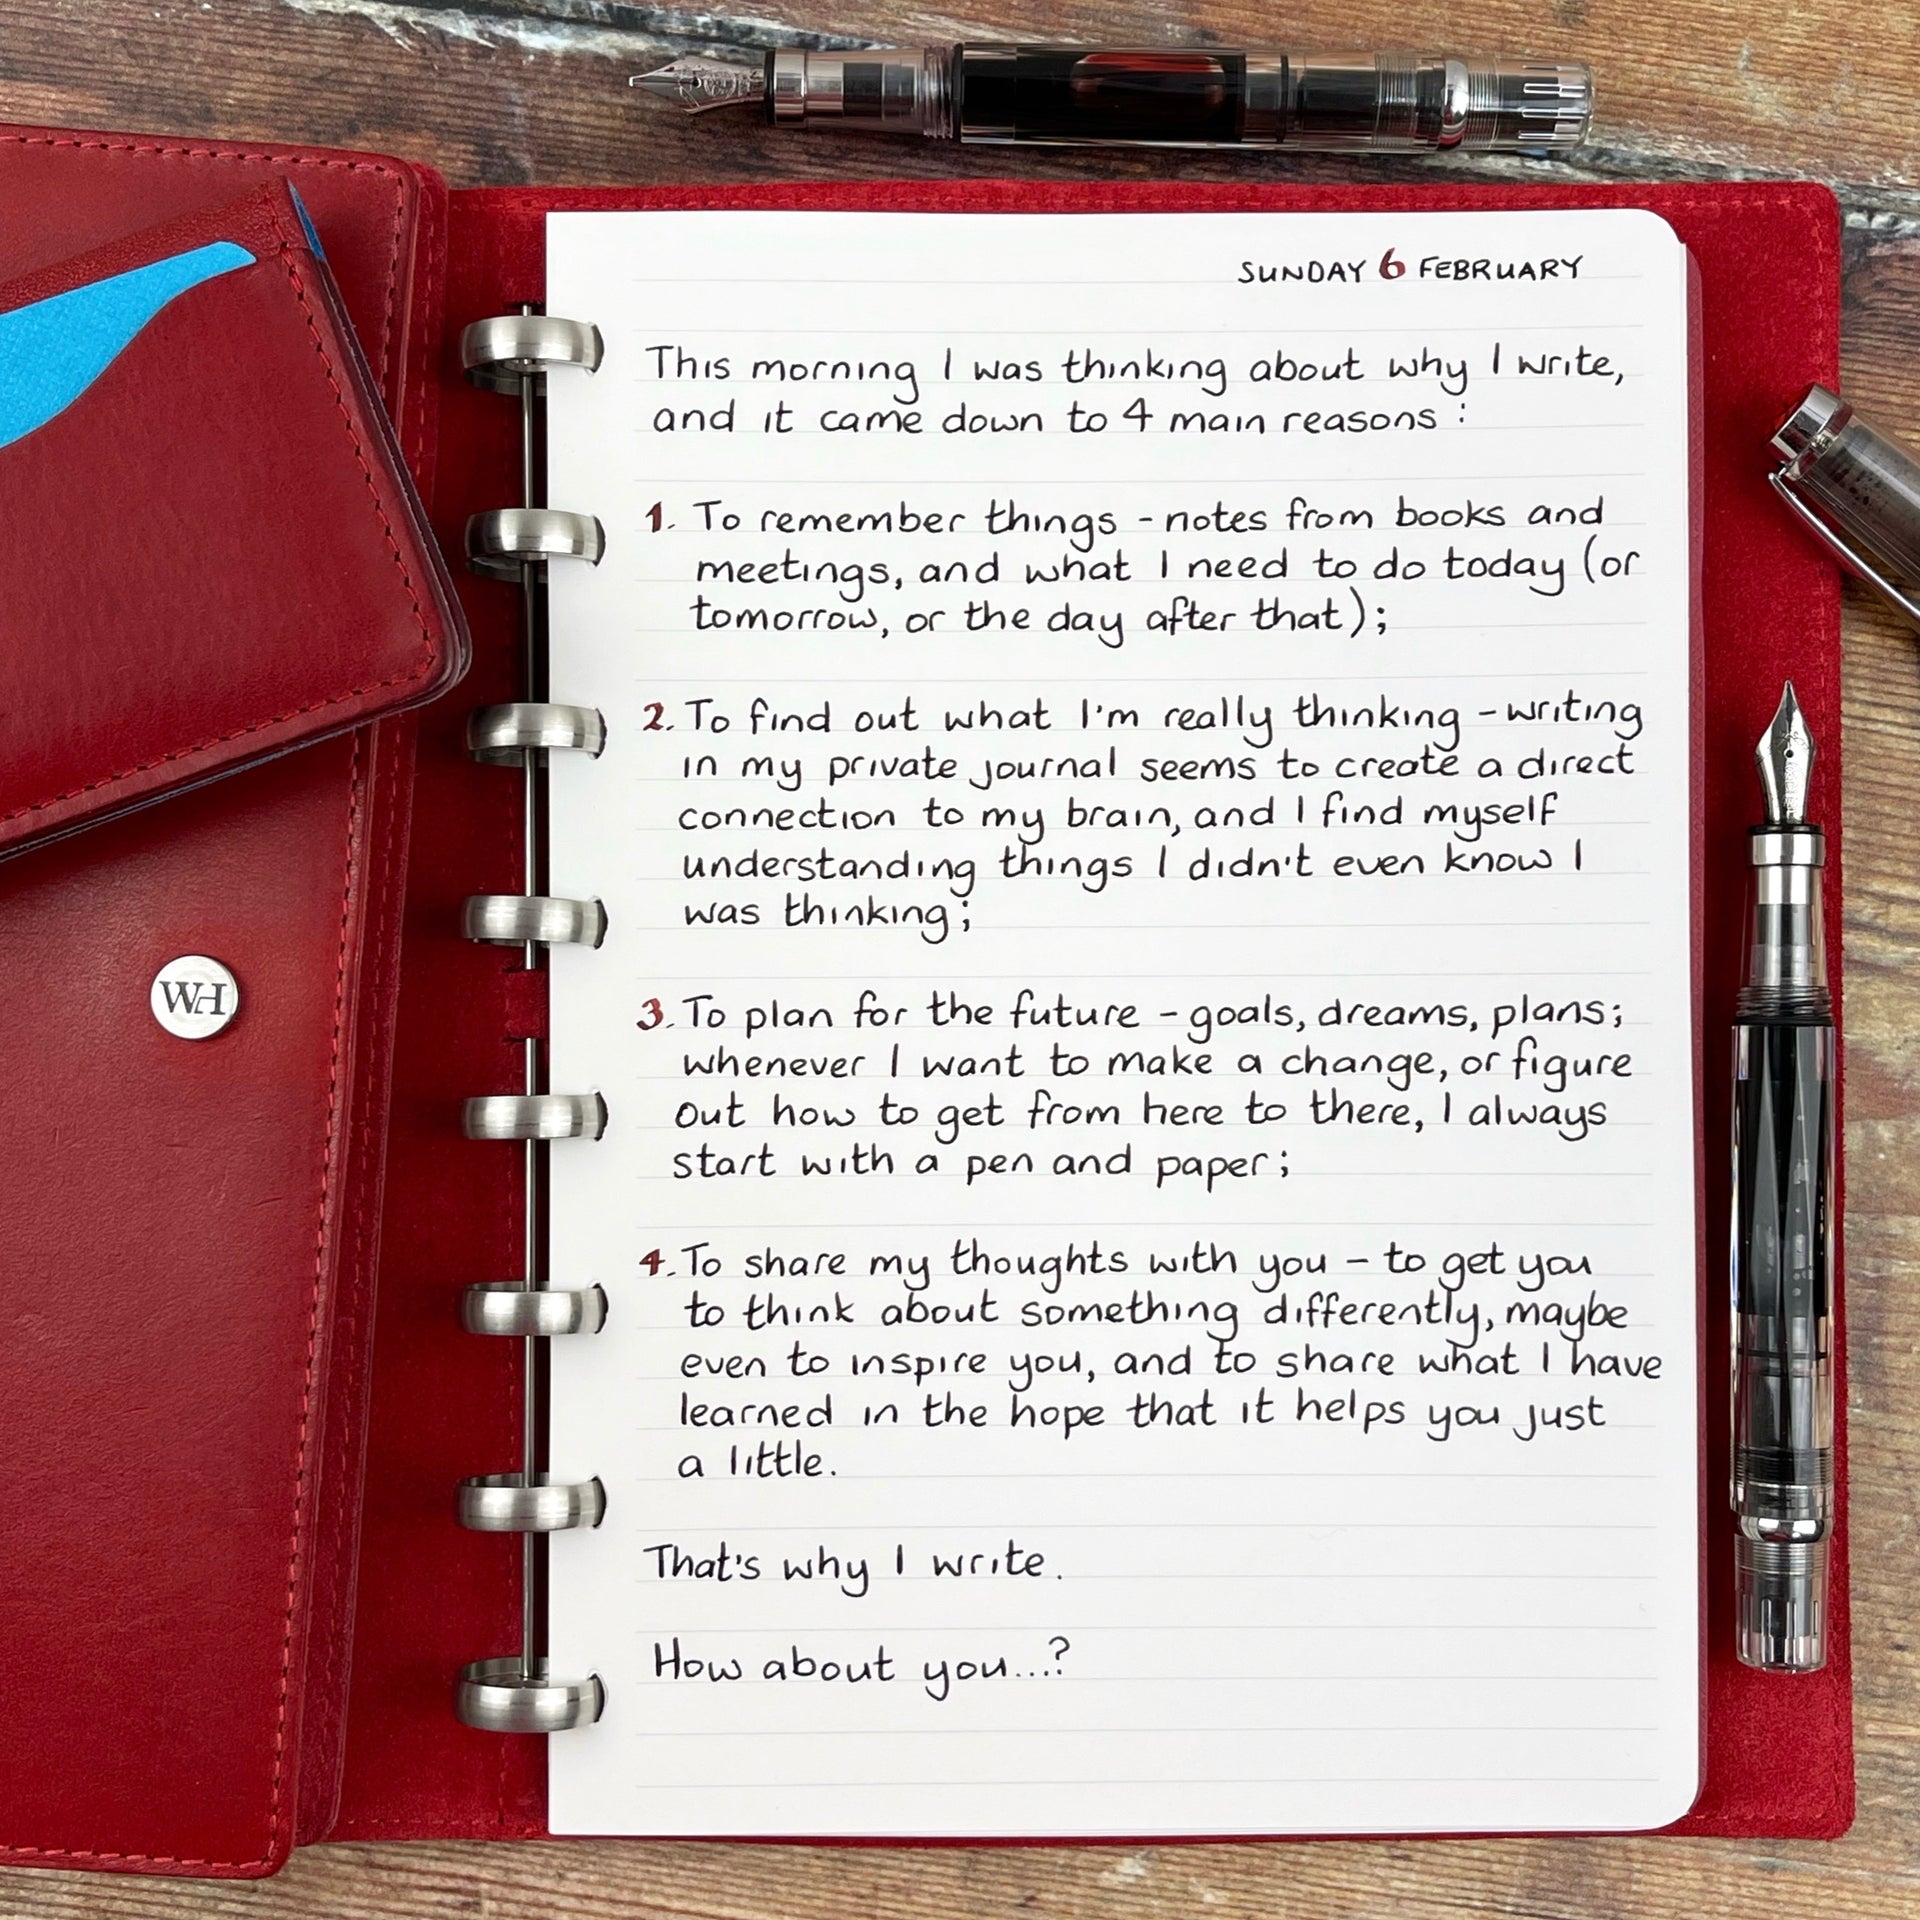 SUNDAY 6 FEBRUARY
This morning I was thinking about why I write,
and it came down to 4 main reasons :
1. To remember things - notes from books and
meetings, and what I need to do today (or
tomorrow, or the day after that);
2. To find out what I'm really thinking - writing
in my private journal seems to create a direct
connection to my brain, and I find myself
understanding things I didn't even know I
was thinking;
3. To plan for the future - goals, dreams, plans;
whenever I want to make a change, or figure
out how to get from here to there, I always
start with a pen and paper;
4. To share my thoughts with you - to get you
to think about something differently, maybe
even to inspire you, and to share what I have
learned in the hope that it helps you just
a little.
That's why I write.
How about you...?
WH